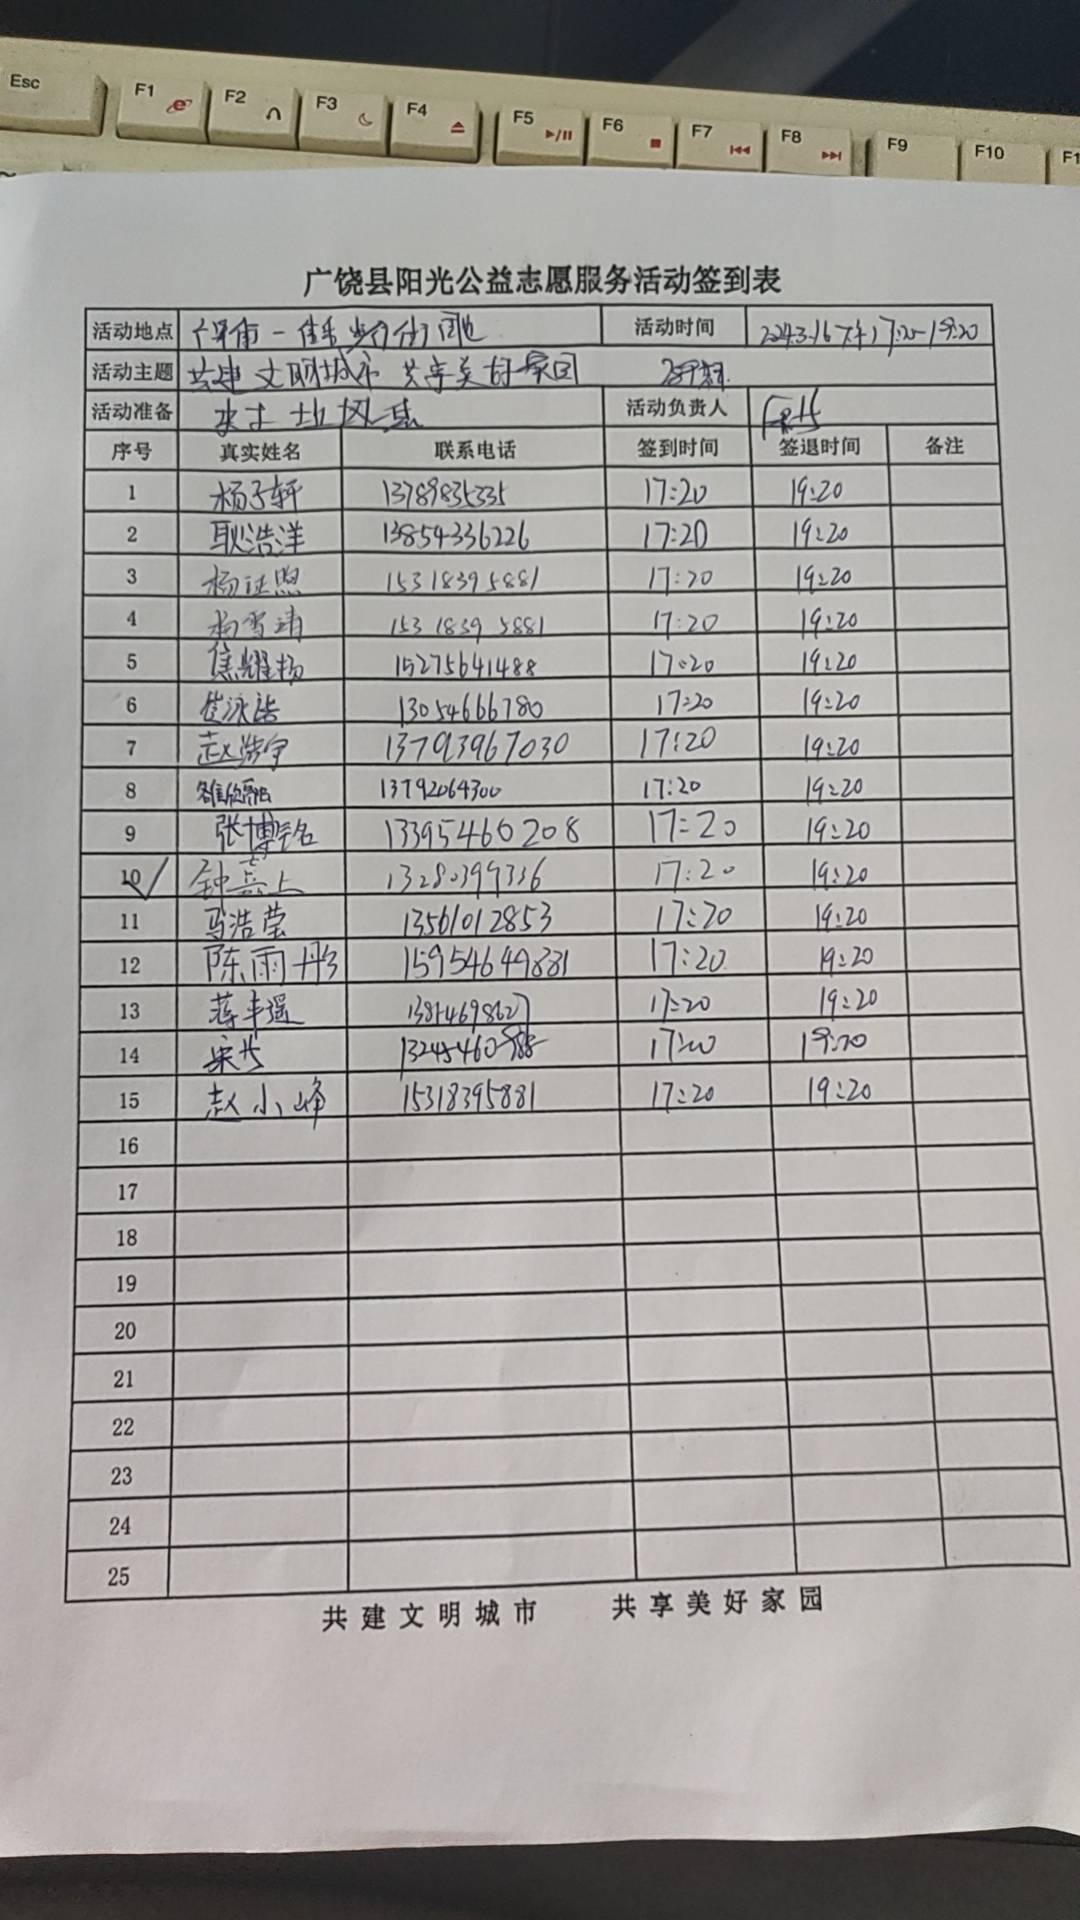 Esc F1 F2 F3 F4 F5 F6 F7 F8 F9 F10 F1
广饶县阳光公益志愿服务活动签到表
活动地点 活动时间 2024.3.16 17:20-19:20
活动主题 共建文明城市 共享美好家园
活动准备 活动负责人
序号 真实姓名 联系电话 签到时间 签退时间 备注
1 杨子轩 13789835335 17:20 19:20
2 耿浩洋 13854336226 17:20 19:20
3 杨证煦 15318395881 17:20 19:20
4 杨雪靖 15318395881 17:20 19:20
5 焦耀杨 15275641488 17:20 19:20
6 13054666780 17:20 19:20
7 赵浩宇 13793967030 17:20 19:20
8 13792064300 17:20 19:20
9 张博铭 13395460208 17:20 19:20
10 钟 上 13280399336 17:20 19:20
11 马浩莹 13561012853 17:20 19:20
12 陈雨彤 15954649881 17:20 19:20
13 蒋丰遥 17:20 19:20
14 17:20 19:20
15 赵小峰 15318395881 17:20 19:20
16
17
18
19
20
21
22
23
24
25
共建文明城市 共享美好家园